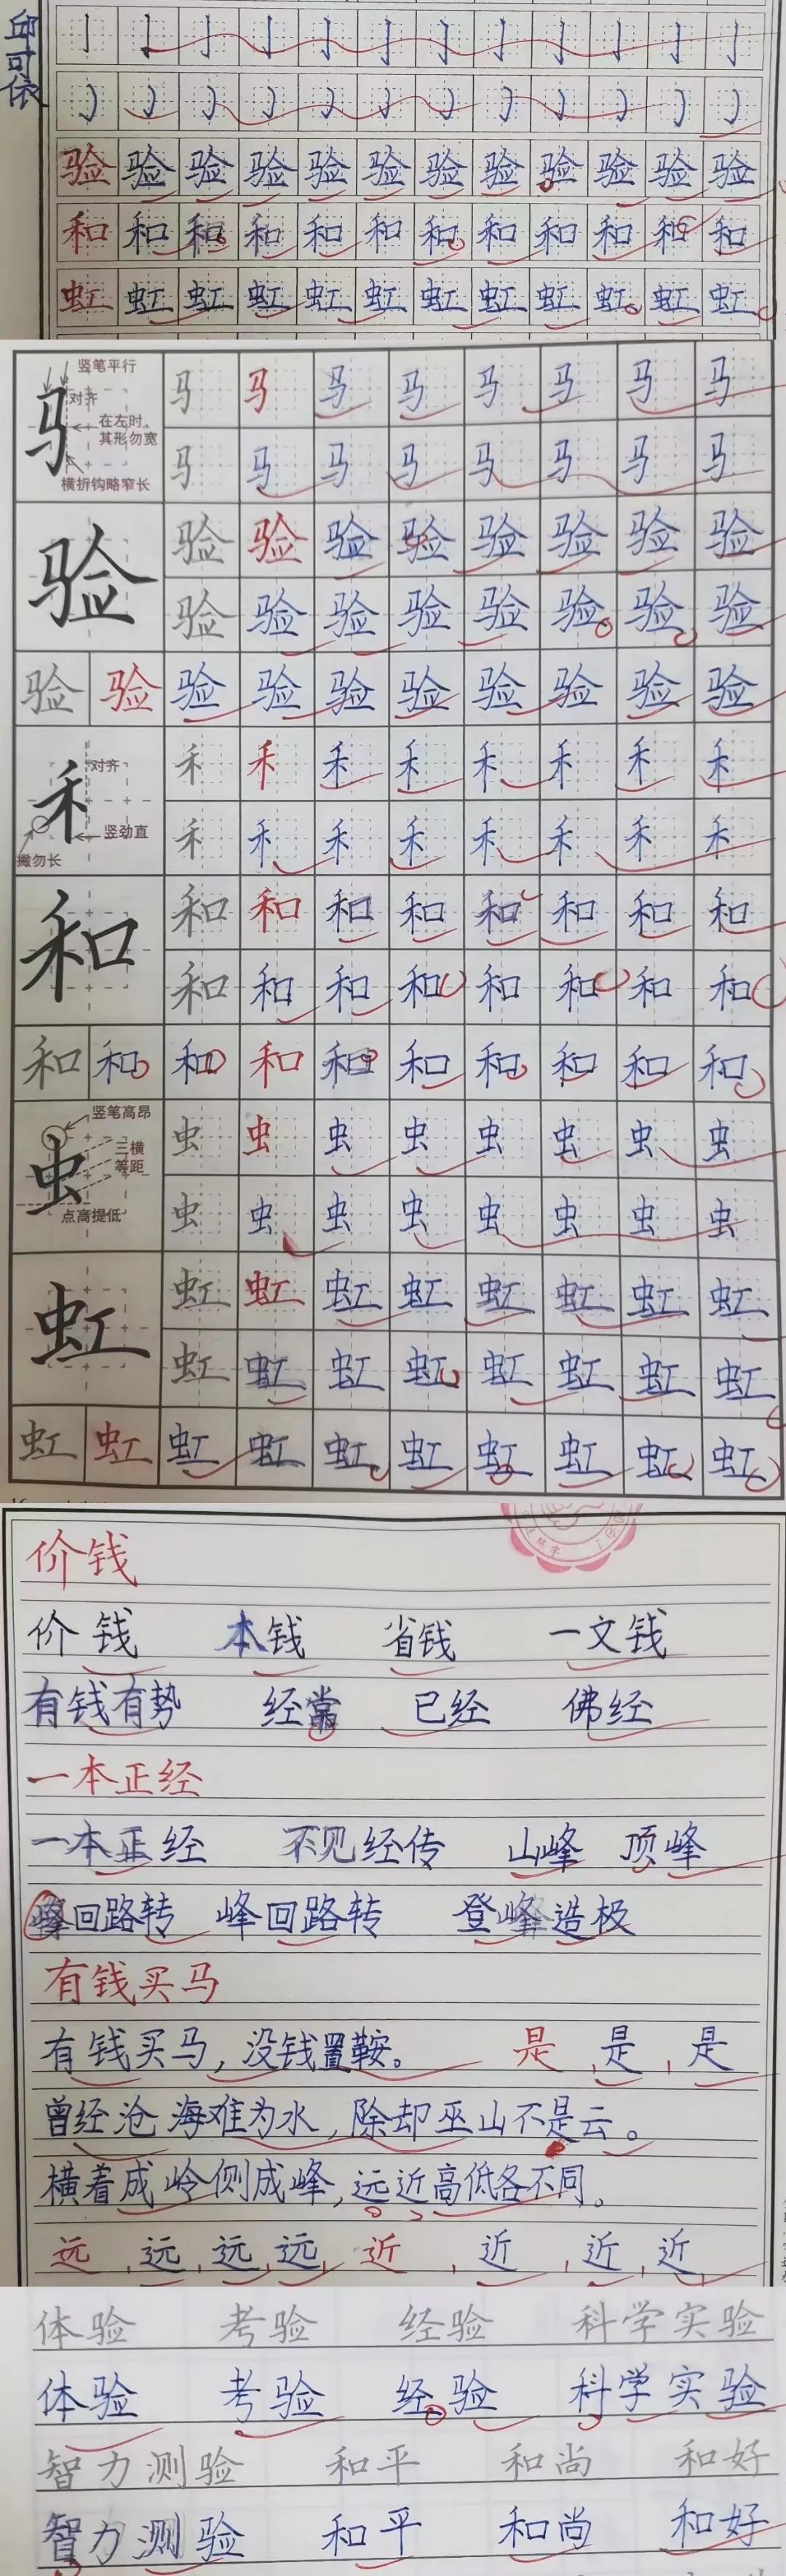 邱可依
验验验验验验验验验验验验
和和和和和和和和和和和和
虹虹虹虹虹虹虹虹虹虹虹虹
竖笔平行
对齐
在左时，
其形勿宽
横折钩略窄长
马马马马马马马马马
马马马马马马马马
验验验验验验验验验
验验验验验验验验
验验验验验验验验验验
对齐
竖劲直
撇勿长
禾禾禾禾禾禾禾禾禾
禾禾禾禾禾禾禾禾
和和和和和和和和和
和和和和和和和和
和和和和和和和和和和
竖笔高昂
三横
等距
点高提低
虫虫虫虫虫虫虫虫虫
虫虫虫虫虫虫虫虫
虹虹虹虹虹虹虹虹虹
虹虹虹虹虹虹虹虹
虹虹虹虹虹虹虹虹虹虹
价钱
价钱 本钱 省钱 一文钱
有钱有势 经常 已经 佛经
一本正经
一本正经 不见经传 山峰 顶峰
峰回路转 峰回路转 登峰造极
有钱买马
有钱买马，没钱置鞍。 是 是 是
曾经沧海难为水，除却巫山不是云。
横着成岭侧成峰，远近高低各不同。
远 远 远 远 近 近 近 近
体验 考验 经验 科学实验
体验 考验 经验 科学实验
智力测验 和平 和尚 和好
智力测验 和平 和尚 和好